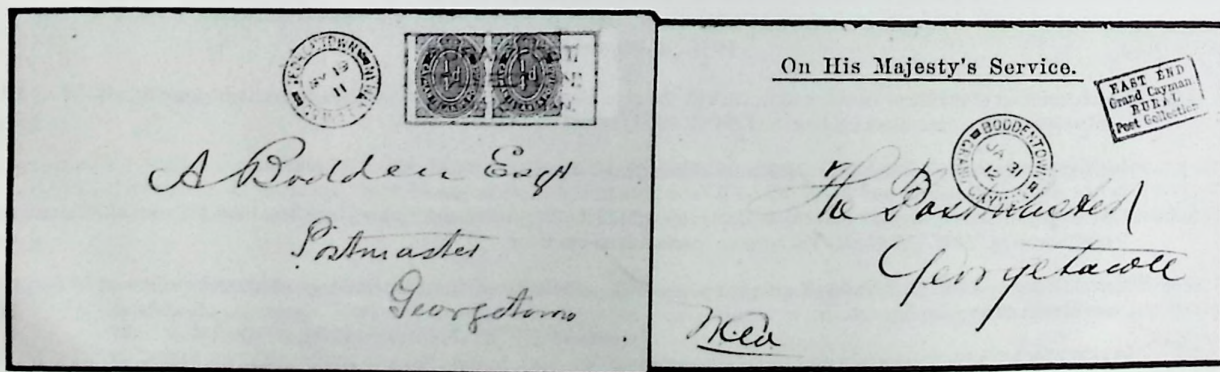 GEORGETOWN
GRAND CAYMAN
NY 19
11
½d
½d
A Bodden Esqr
Postmaster
Georgetown
On His Majesty's Service.
EAST END
Grand Cayman
RURAL
Post Collection
BODDENTOWN
JA 31
12
GRAND CAYMAN
The Postmaster
Georgetown